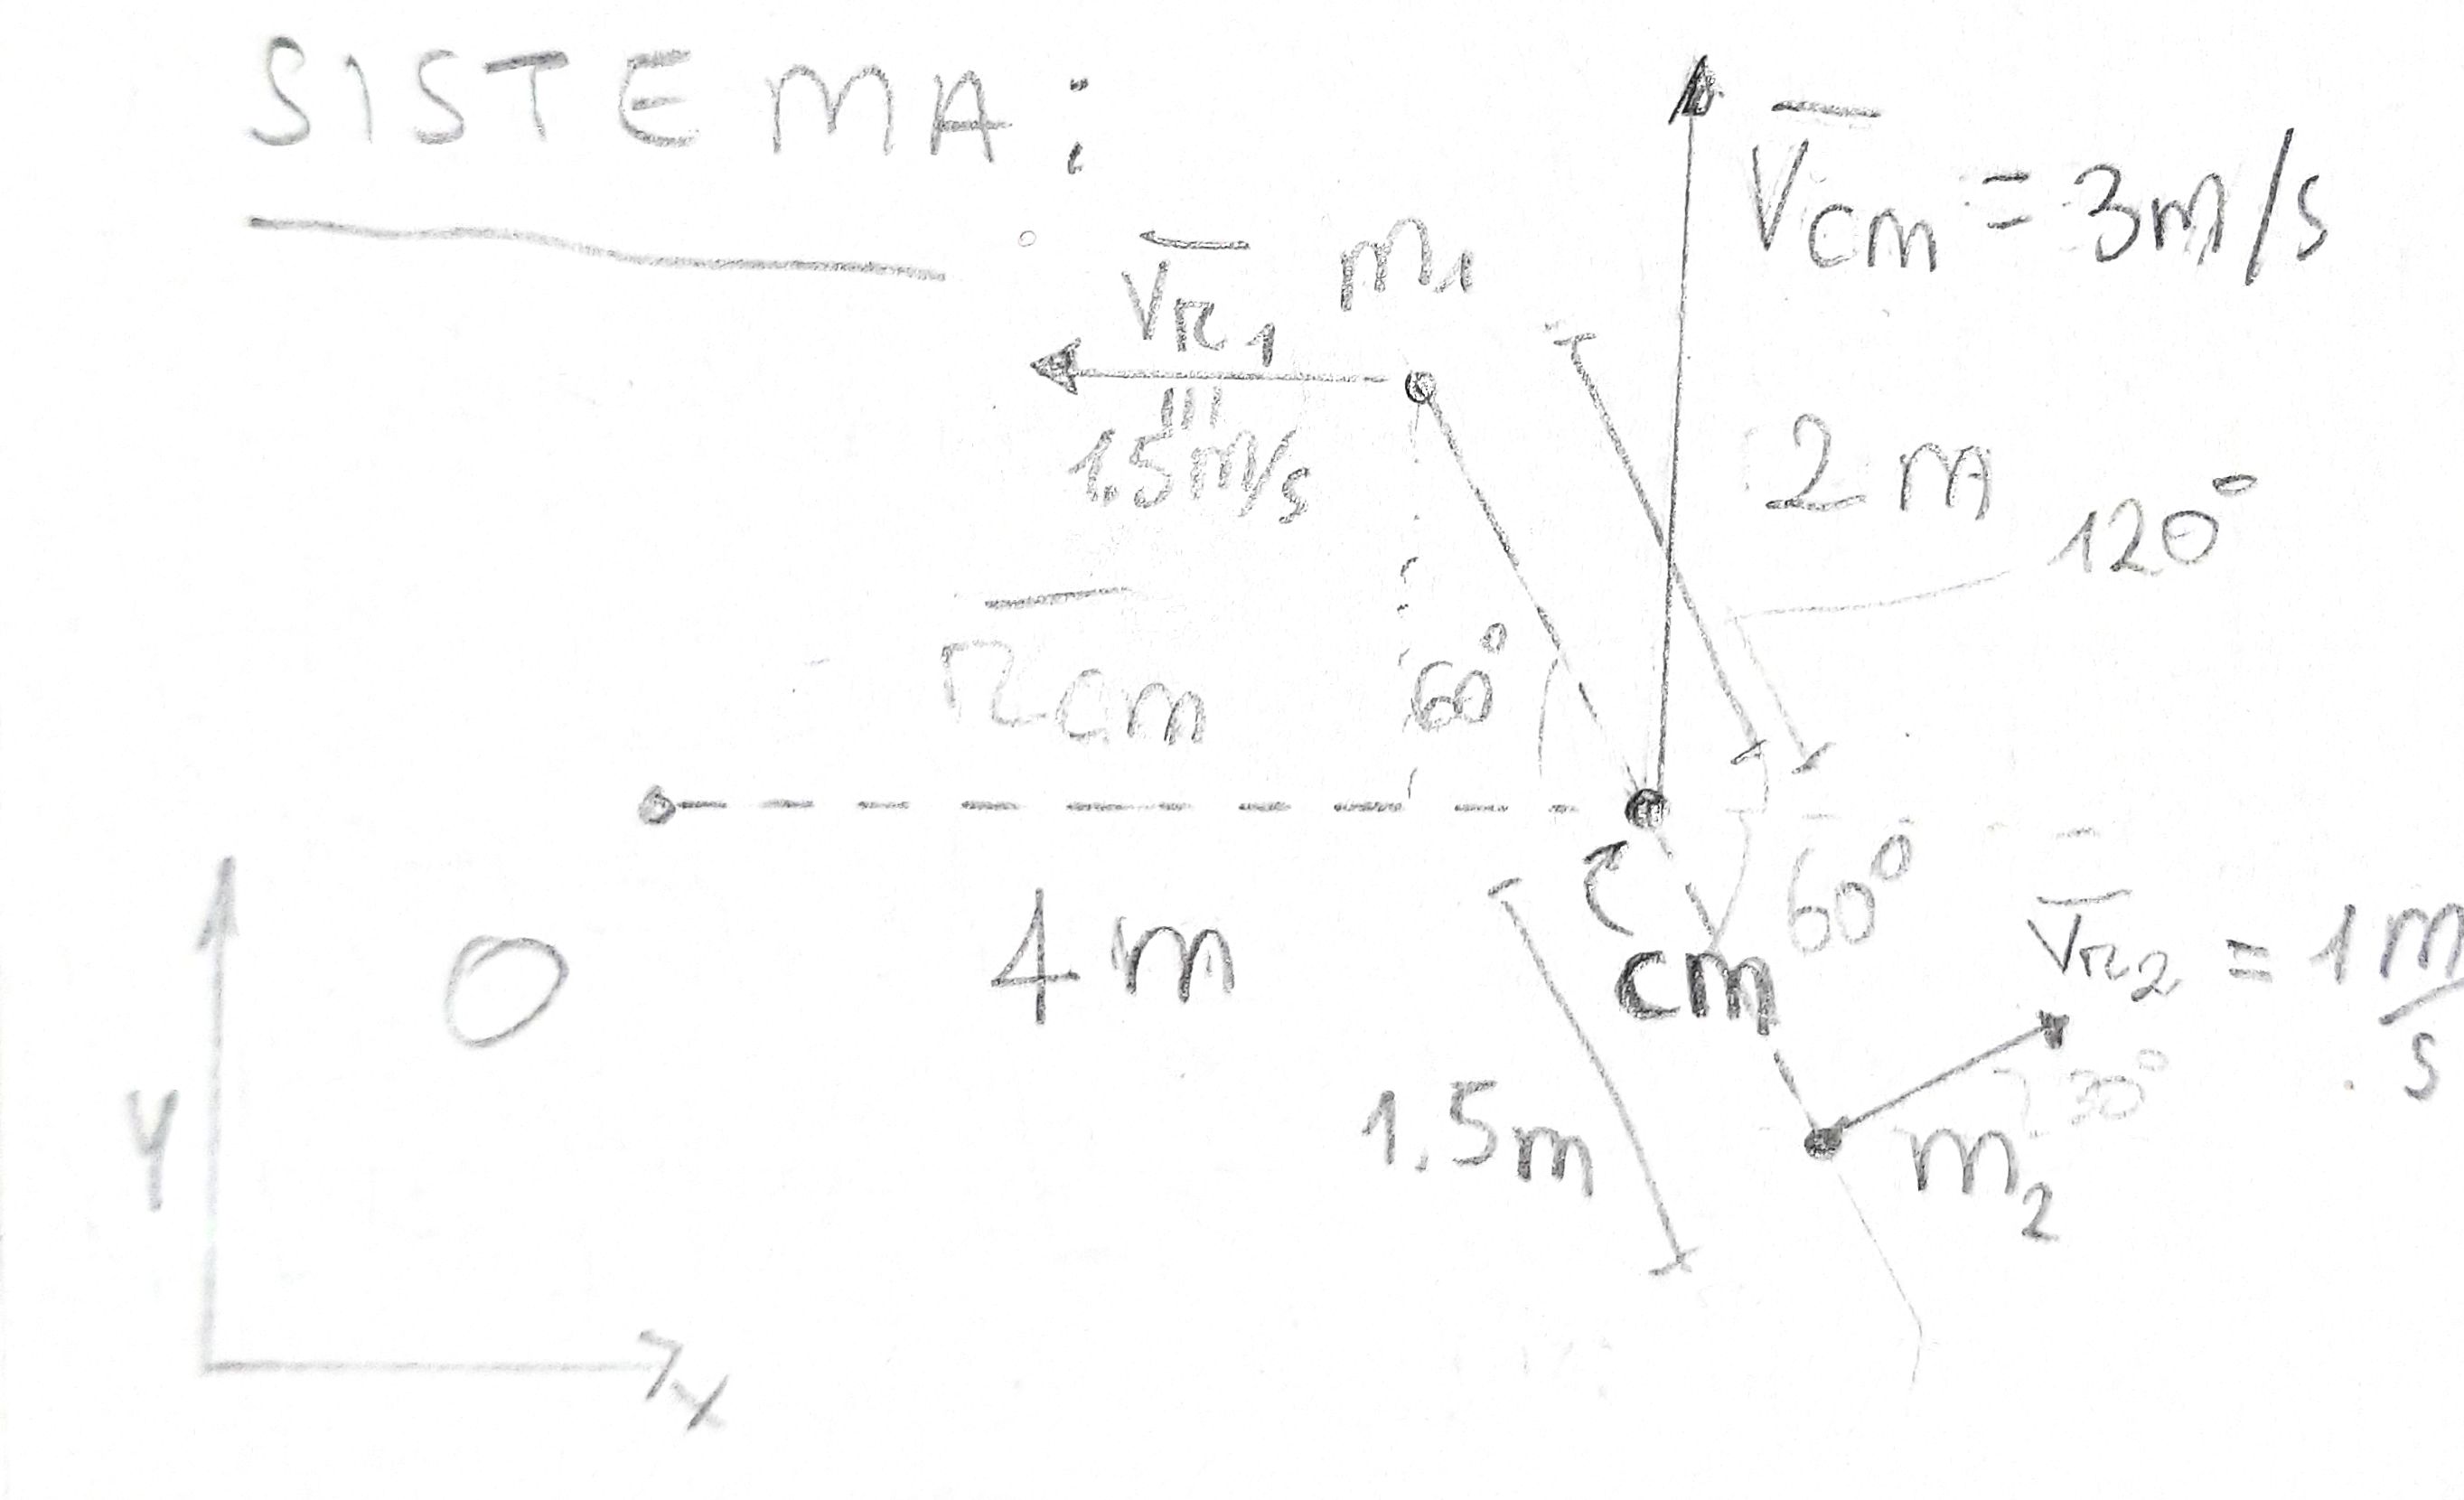 SISTEMA:
V̅cm = 3m/s
V̅r₁ m₁
1.5m/s
2m
120°
r̅cm
60°
4m
60°
cm
V̅r₂ = 1m/s
30°
1.5m
m₂
O
Y
X